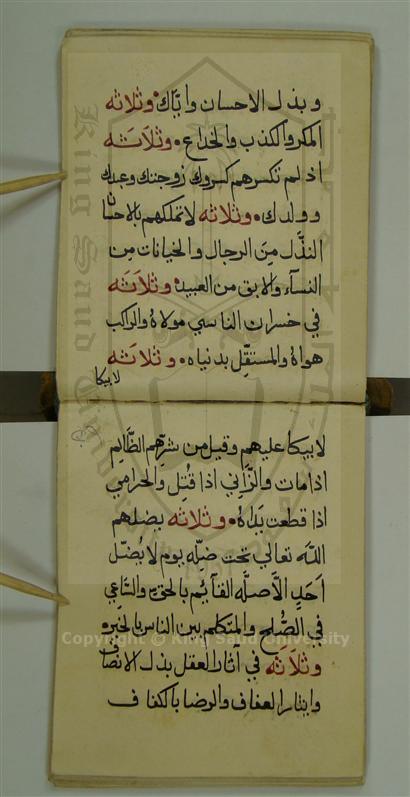 وبذل الاحسان واياك وثلاثه
المكر والكذب والخداع وثلاثه
اذ لم تكسرهم كسروك زوجتك وعبدك
وولدك وثلاثه لا تملكهم بالاحسان
النذل من الرجال والخيانات من
النسآء والابق من العبيد وثلاثه
في خسران الناسي مولاه والراكب
هواه والمستقل بدنياه وثلاثه
لا يبكا
لا يبكا عليهم وقيل من شرهم الظالم
اذا مات والزاني اذا قتل والحرامي
اذا قطعت يداه وثلاثه يضلهم
الله تعالي تحت ضله يوم لا يضل
احد الا ضله القآئم بالحق والساعي
في الصلح والمتكلم بين الناس بالخير و
وثلاثه في اثار العقل بذل الانصاف
وايثار العفاف والرضا بالكفاف
Copyright © King Saud University